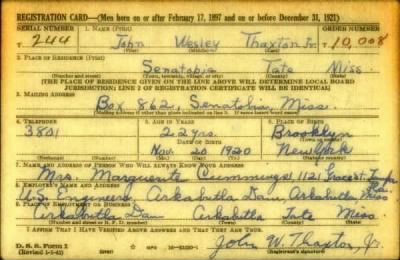 REGISTRATION CARD—(Men born on or after February 17, 1897 and on or before December 31, 1921)
SERIAL NUMBER 1. NAME (Print) ORDER NUMBER
T 244 John Wesley Thaxton Jr. T 10,008
(First) (Middle) (Last)
2. PLACE OF RESIDENCE (Print)
Senatobia Tate Miss
(Number and street) (Town, township, village, or city) (County) (State)
[THE PLACE OF RESIDENCE GIVEN ON THE LINE ABOVE WILL DETERMINE LOCAL BOARD
JURISDICTION; LINE 2 OF REGISTRATION CERTIFICATE WILL BE IDENTICAL]
3. MAILING ADDRESS
Box 862, Senatobia, Miss.
(Mailing address if other than place indicated on line 2. If same insert word same)
4. TELEPHONE 5. AGE IN YEARS 6. PLACE OF BIRTH
3801 22 yrs. Brooklyn
DATE OF BIRTH (Town or county)
Nov. 20 1920 New York
(Exchange) (Number) (Mo.) (Day) (Yr.) (State or country)
7. NAME AND ADDRESS OF PERSON WHO WILL ALWAYS KNOW YOUR ADDRESS
Mrs. Marguerite Cummings, 1121 Grace St.
8. EMPLOYER'S NAME AND ADDRESS
U.S. Engineers, Arkabutla Dam, Arkabutla Miss
9. PLACE OF EMPLOYMENT OR BUSINESS
Arkabutla Dam Arkabutla Tate Miss.
(Number and street or R. F. D. number) (Town) (County) (State)
I AFFIRM THAT I HAVE VERIFIED ABOVE ANSWERS AND THAT THEY ARE TRUE.
D. S. S. Form 1 John W. Thaxton, Jr.
(Registrant's signature)